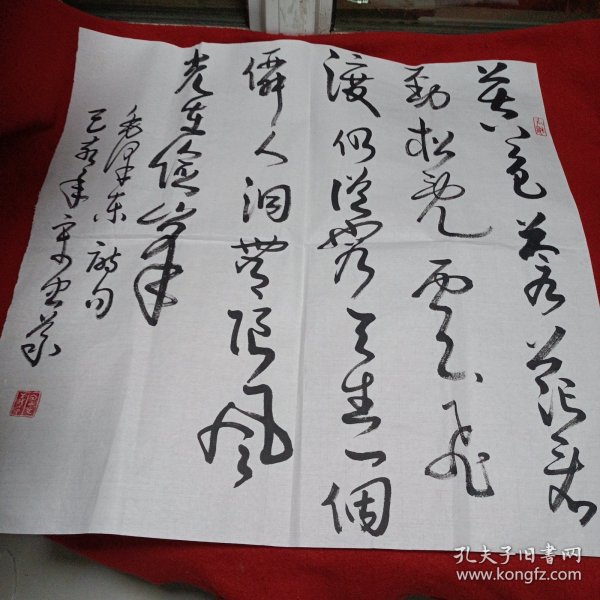 暮色苍茫看
劲松乱云飞
渡仍従容天生一個
僊人洞無限風
光在險峰
毛泽东诗句
己亥年
孔夫子旧书网
www.kongfz.com